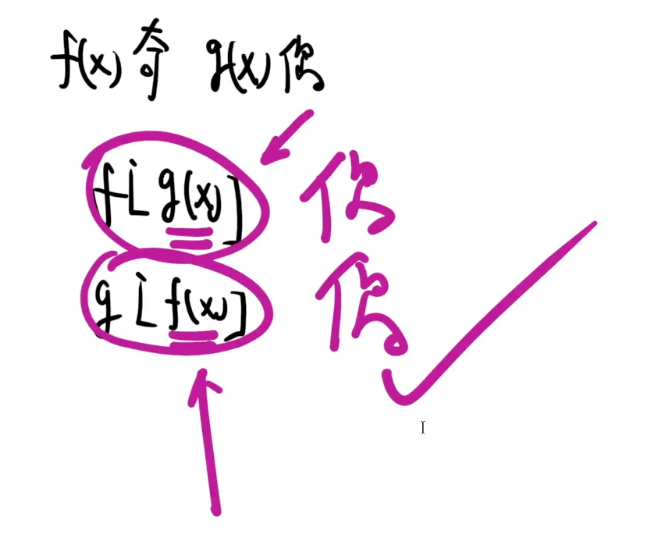 f(x) 奇 g(x) 偶
f[g(x)] 偶
g[f(x)] 偶